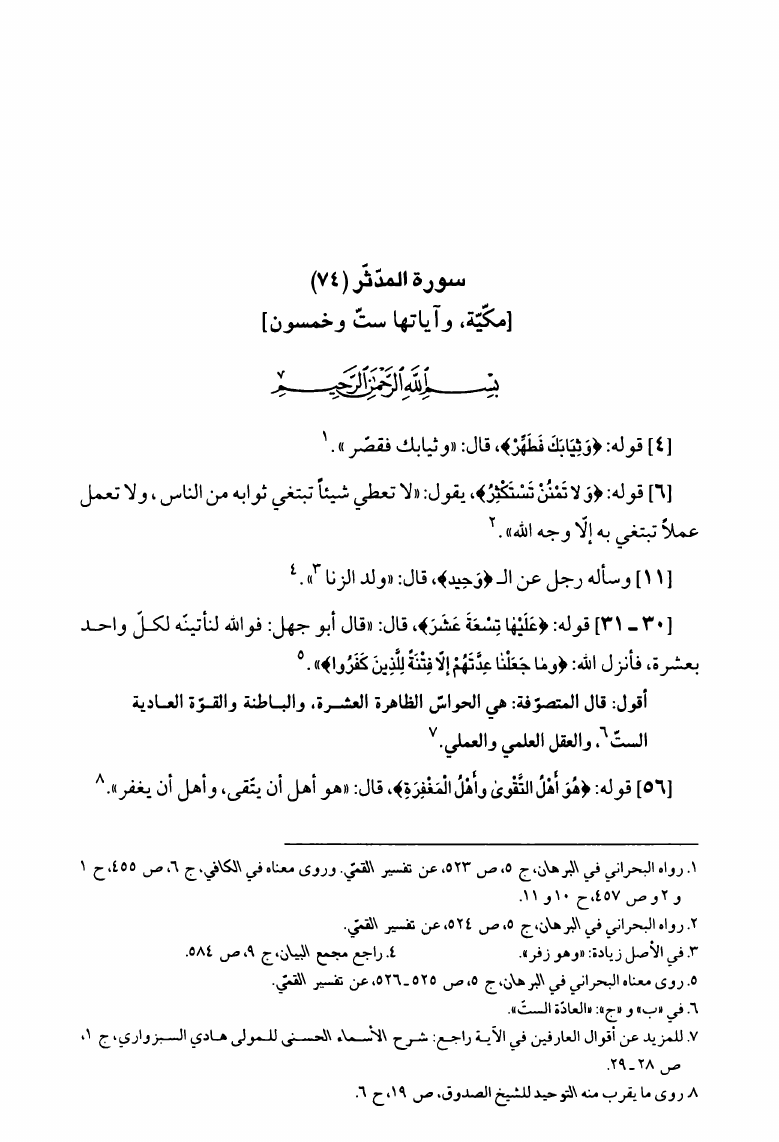 سورة المدّثّر (٧٤)
[مكّيّة، وآياتها ستّ وخمسون]
بِسْمِ ٱللَّهِ ٱلرَّحْمَٰنِ ٱلرَّحِيمِ
[٤] قوله: ﴿وَثِيَابَكَ فَطَهِّرْ﴾، قال: «وثيابك فقصّر».١
[٦] قوله: ﴿وَ لا تَمْنُنْ تَسْتَكْثِرُ﴾، يقول: «لا تعطي شيئاً تبتغي ثوابه من الناس، ولا تعمل
عملاً تبتغي به إلّا وجه الله».٢
[١١] وسأله رجل عن الـ ﴿وَحِيد﴾، قال: «ولد الزنا٣».٤
[٣٠ ـ ٣١] قوله: ﴿عَلَيْهٰا تِسْعَةَ عَشَرَ﴾، قال: «قال أبو جهل: فوالله لنأتينّه لكلّ واحد
بعشرة، فأنزل الله: ﴿ومٰا جَعَلْنٰا عِدَّتَهُمْ إلّا فِتْنَةً لِلَّذِينَ كَفَرُوا﴾».٥
أقول: قال المتصوّفة: هي الحواسّ الظاهرة العشرة، والباطنة والقوّة العادية
الستّ٦، والعقل العلمي والعملي.٧
[٥٦] قوله: ﴿هُوَ أهْلُ التَّقْوىٰ وأهْلُ الْمَغْفِرَةِ﴾، قال: «هو أهل أن يتّقى، وأهل أن يغفر».٨
١. رواه البحراني في البرهان، ج ٥، ص ٥٢٣، عن تفسير القمّي. وروى معناه في الكافي، ج ٦، ص ٤٥٥، ح ١
و ٢ و ص ٤٥٧، ح ١٠ و ١١.
٢. رواه البحراني في البرهان، ج ٥، ص ٥٢٤، عن تفسير القمّي.
٣. في الأصل زيادة: «وهو زفر». ٤. راجع مجمع البيان، ج ٩، ص ٥٨٤.
٥. روى معناه البحراني في البرهان، ج ٥، ص ٥٢٥ ـ ٥٢٦، عن تفسير القمّي.
٦. في «ب» و «ج»: «العادّة الستّ».
٧. للمزيد عن أقوال العارفين في الآية راجع: شرح الأسماء الحسنى للمولى هادي السبزواري، ج ١،
ص ٢٨ ـ ٢٩.
٨. روى ما يقرب منه التوحيد للشيخ الصدوق، ص ١٩، ح ٦.